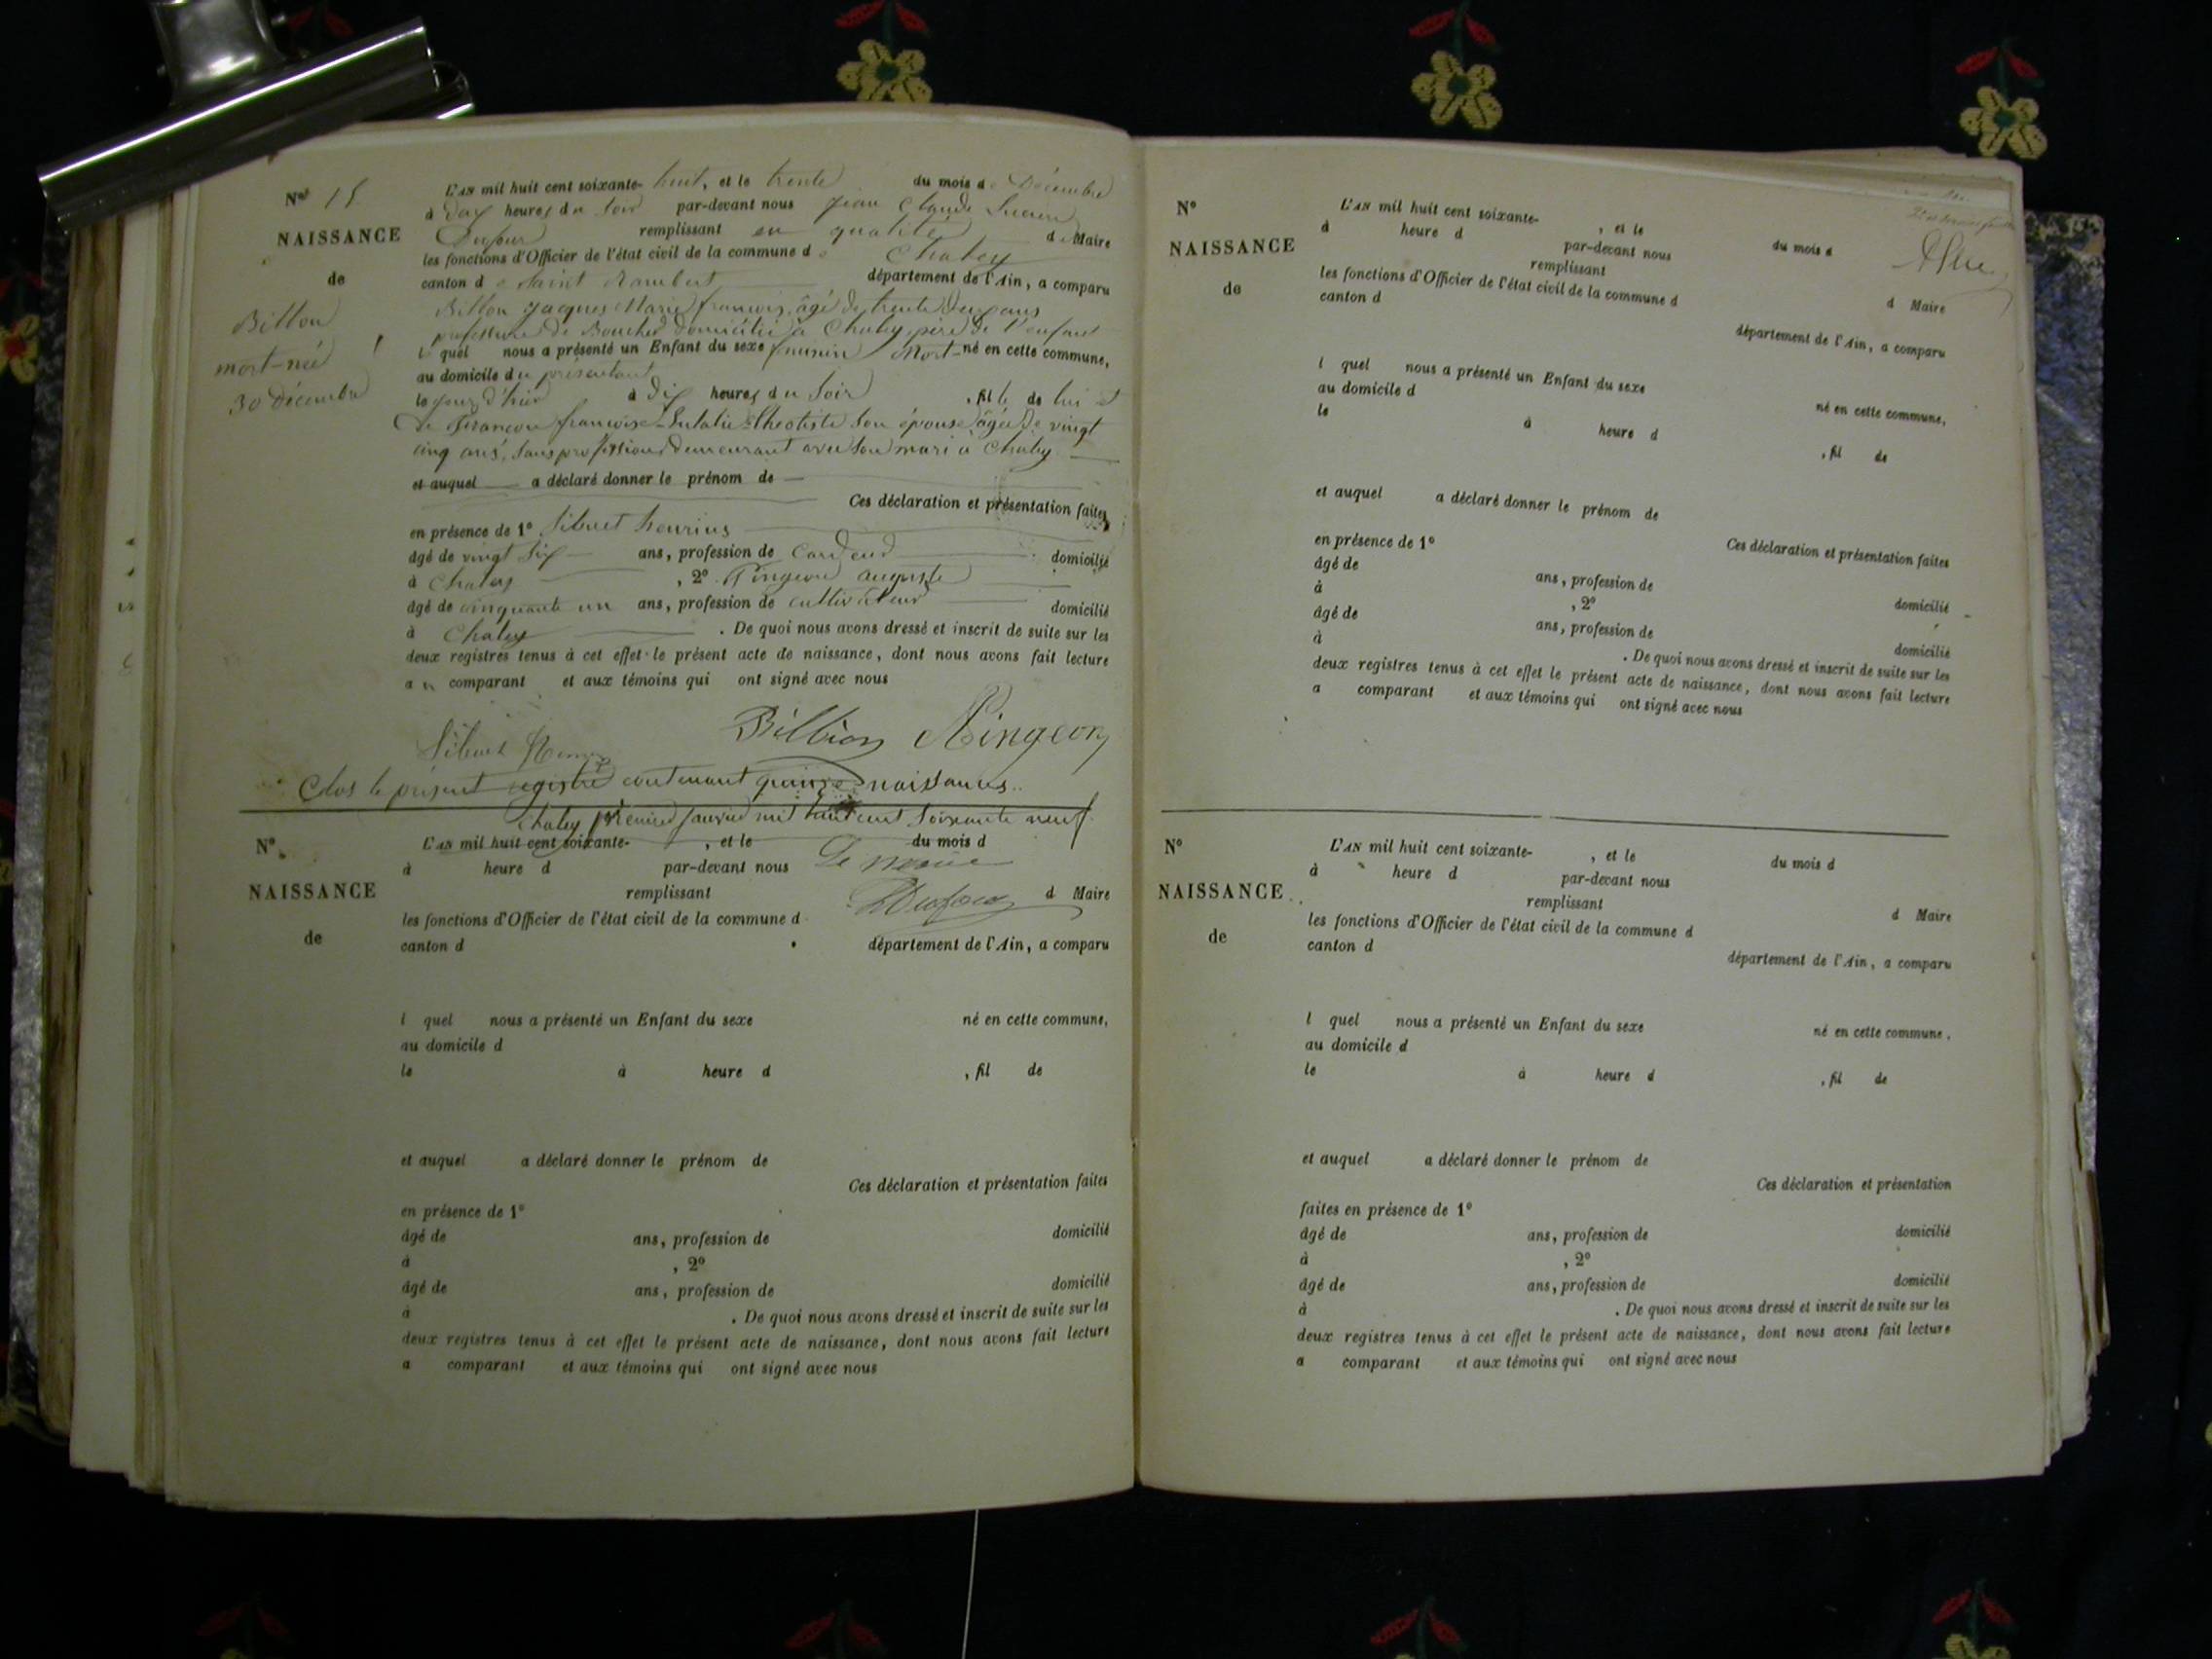 N° 15
NAISSANCE
de
Billon
mort-née
30 décembre
L'AN mil huit cent soixante-huit, et le trente du mois de Décembre
à Dix heures du soir par-devant nous Jean Claude
Dufour remplissant en qualité de Maire
les fonctions d'Officier de l'état civil de la commune de Chaley
canton de Saint Rambert département de l'Ain, a comparu
Billon Jacques Marie françois, âgé de trente deux ans
profession de Boucher domicilié à Chaley, père de l'enfant
lquel nous a présenté un Enfant du sexe féminin Mort-né en cette commune,
au domicile du présentant
le jour d'hier à Dix heures du Soir, fille de lui et
De françoise Eulalie Théotiste son épouse âgée de vingt
cinq ans, sans profession demeurant avec son mari à Chaley
et auquel a déclaré donner le prénom de
Ces déclaration et présentation faites
en présence de 1°
âgé de vingt six ans, profession de domicilié
à Chaley, 2° Pingeon auguste
âgé de cinquante un ans, profession de cultivateur domicilié
à Chaley. De quoi nous avons dressé et inscrit de suite sur les
deux registres tenus à cet effet le présent acte de naissance, dont nous avons fait lecture
au comparant et aux témoins qui ont signé avec nous
Billion Pingeon
Clos le présent registre contenant quinze naissances.
Chaley premier janvier mil huit cent soixante neuf.
Le maire
Dufour
N°
NAISSANCE
de
L'AN mil huit cent soixante- , et le du mois d
à heure d par-devant nous
remplissant d Maire
les fonctions d'Officier de l'état civil de la commune d
canton d département de l'Ain, a comparu
l quel nous a présenté un Enfant du sexe né en cette commune,
au domicile d
le à heure d , fil de
et auquel a déclaré donner le prénom de
Ces déclaration et présentation faites
en présence de 1°
âgé de ans, profession de domicilié
à , 2°
âgé de ans, profession de domicilié
à . De quoi nous avons dressé et inscrit de suite sur les
deux registres tenus à cet effet le présent acte de naissance, dont nous avons fait lecture
a comparant et aux témoins qui ont signé avec nous
N°
NAISSANCE
de
L'AN mil huit cent soixante- , et le du mois d
à heure d par-devant nous
remplissant d Maire
les fonctions d'Officier de l'état civil de la commune d
canton d département de l'Ain, a comparu
l quel nous a présenté un Enfant du sexe né en cette commune,
au domicile d
le à heure d , fil de
et auquel a déclaré donner le prénom de
Ces déclaration et présentation faites
en présence de 1°
âgé de ans, profession de domicilié
à , 2°
âgé de ans, profession de domicilié
à . De quoi nous avons dressé et inscrit de suite sur les
deux registres tenus à cet effet le présent acte de naissance, dont nous avons fait lecture
a comparant et aux témoins qui ont signé avec nous
N°
NAISSANCE
de
L'AN mil huit cent soixante- , et le du mois d
à heure d par-devant nous
remplissant d Maire
les fonctions d'Officier de l'état civil de la commune d
canton d département de l'Ain, a comparu
l quel nous a présenté un Enfant du sexe né en cette commune.
au domicile d
le à heure d , fil de
et auquel a déclaré donner le prénom de
Ces déclaration et présentation
faites en présence de 1°
âgé de ans, profession de domicilié
à , 2°
âgé de ans, profession de domicilié
à . De quoi nous avons dressé et inscrit de suite sur les
deux registres tenus à cet effet le présent acte de naissance, dont nous avons fait lecture
a comparant et aux témoins qui ont signé avec nous